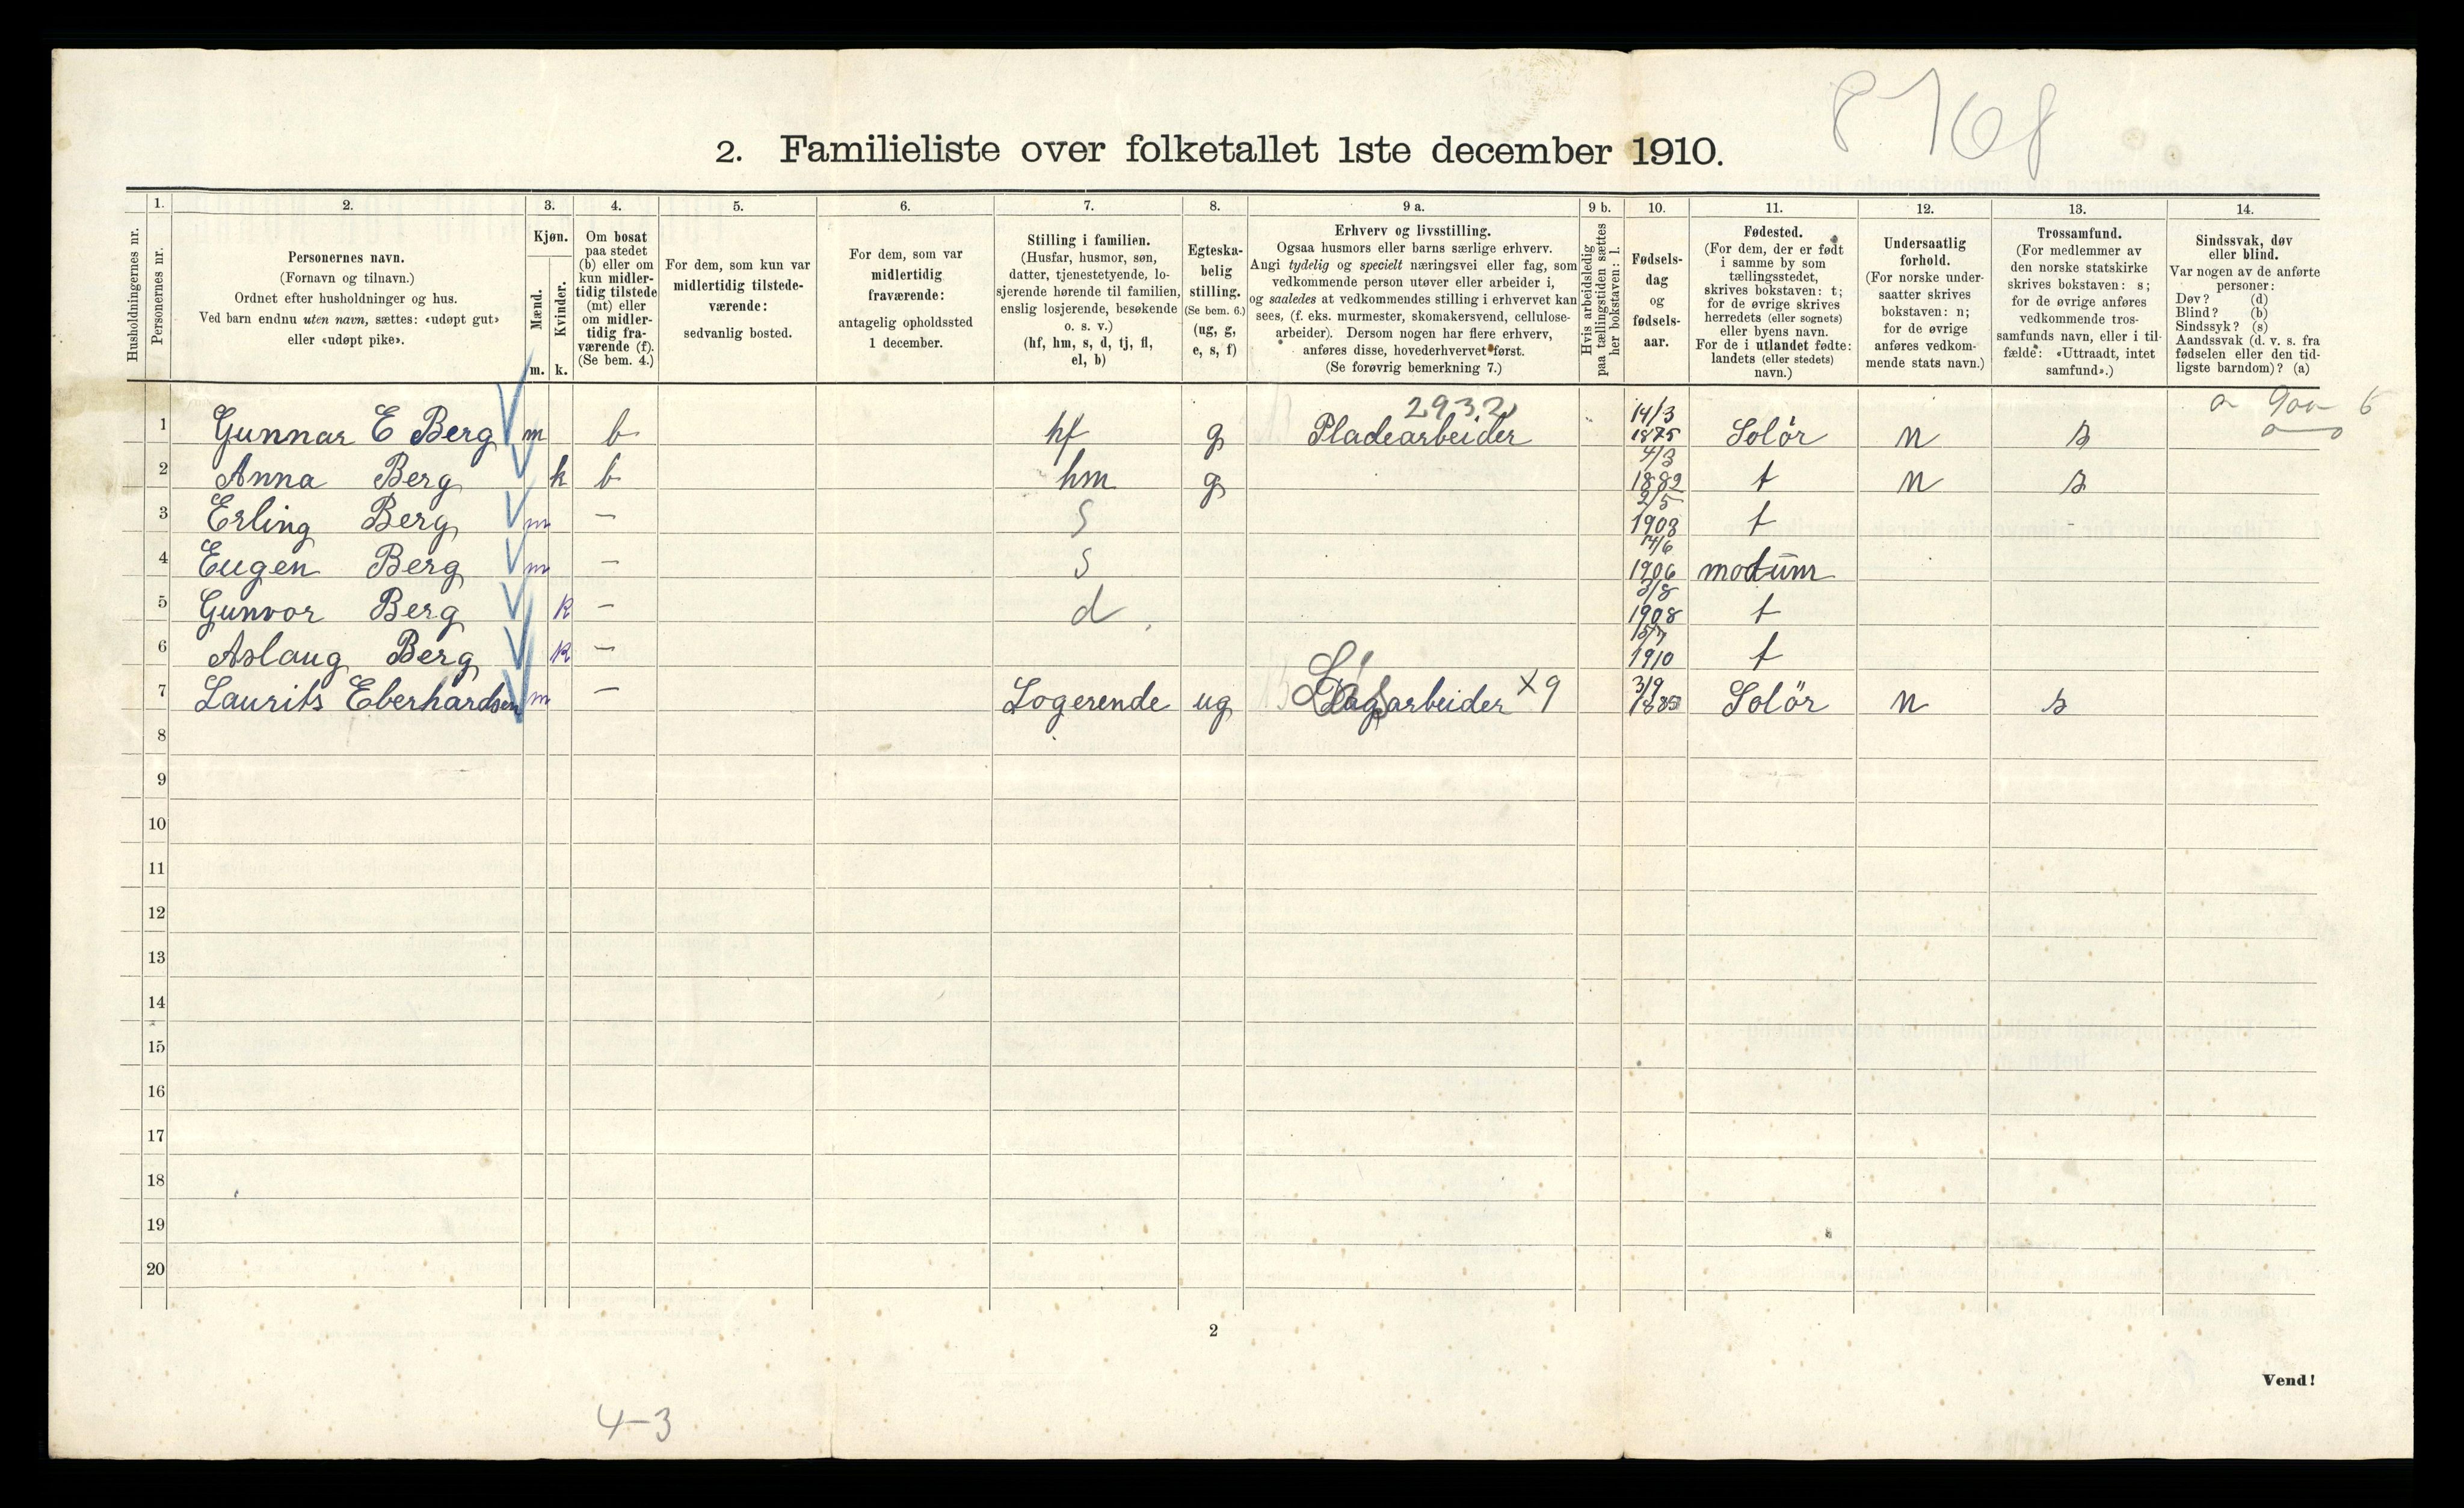 8768
2. Familieliste over folketallet 1ste december 1910.
Husholdningernes nr.
1. Personernes nr.
2. Personernes navn.
(Fornavn og tilnavn.)
Ordnet efter husholdninger og hus.
Ved barn endnu uten navn, sættes: «udøpt gut»
eller «udøpt pike».
3. Kjøn.
Mænd. m.
Kvinder. k.
4. Om bosat
paa stedet
(b) eller om
kun midler-
tidig tilstede
(mt) eller
om midler-
tidig fra-
værende (f).
(Se bem. 4.)
5. For dem, som kun var
midlertidig tilstede-
værende:
sedvanlig bosted.
6. For dem, som var
midlertidig
fraværende:
antagelig opholdssted
1 december.
7. Stilling i familien.
(Husfar, husmor, søn,
datter, tjenestetyende, lo-
sjerende hørende til familien,
enslig losjerende, besøkende
o. s. v.)
(hf, hm, s, d, tj, fl,
el, b)
8. Egteska-
belig
stilling.
(Se bem. 6.)
(ug, g,
e, s, f)
9 a. Erhverv og livsstilling.
Ogsaa husmors eller barns særlige erhverv.
Angi tydelig og specielt næringsvei eller fag, som
vedkommende person utøver eller arbeider i,
og saaledes at vedkommendes stilling i erhvervet kan
sees, (f. eks. murmester, skomakersvend, cellulose-
arbeider). Dersom nogen har flere erhverv,
anføres disse, hovederhvervet først.
(Se forøvrig bemerkning 7.)
9 b. Hvis arbeidsledig
paa tællingstiden sættes
her bokstaven: l.
10. Fødsels-
dag
og
fødsels-
aar.
11. Fødested.
(For dem, der er født
i samme by som
tællingsstedet,
skrives bokstaven: t;
for de øvrige skrives
herredets (eller sognets)
eller byens navn.
For de i utlandet fødte:
landets (eller stedets)
navn.)
12. Undersaatlig
forhold.
(For norske under-
saatter skrives
bokstaven: n;
for de øvrige
anføres vedkom-
mende stats navn.)
13. Trossamfund.
(For medlemmer av
den norske statskirke
skrives bokstaven: s;
for de øvrige anføres
vedkommende tros-
samfunds navn, eller i til-
fælde: «Uttraadt, intet
samfund».)
14. Sindssvak, døv
eller blind.
Var nogen av de anførte
personer:
Døv? (d)
Blind? (b)
Sindssyk? (s)
Aandssvak (d. v. s. fra
fødselen eller den tid-
ligste barndom)? (a)
2932
1 Gunnar E Berg m b hf g Pladearbeider 14/3 1875 Solör n s
2 Anna Berg k b hm g 4/3 1882 t n s
3 Erling Berg m — s 2/5 1903 t
4 Eugen Berg m — s 14/6 1906 modum
5 Gunvor Berg k — d 3/8 1908 t
6 Aslaug Berg k — 1910 t
7 Laurits Eberhardsen m — Logerende ug arbeider X9 3/9 Solör n s
8
9
10
11
12
13
14
15
16
17
18
19
20
2
Vend!
4-3